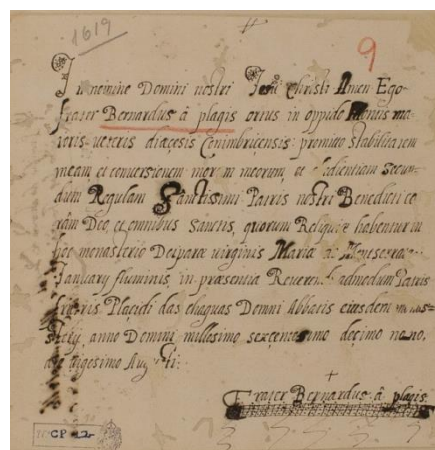 1619
9
In nomine Domini nostri Jesu Christi Amen Ego
frater Bernardus â plagis orius in oppido Montis ma
ioris ueteris diœcesis Conimbricensis promitto stabilitatem
meam, et conuersionem morum meorum, et obedientiam secun-
dum Regulam Sanctissimi Patris nostri Benedicti co
ram Deo, et omnibus Sanctis, quorum Reliquiæ habentur in
hoc monasterio Deiparæ uirginis Mariæ de Monserrate
January fluminis, in præsentia Reuerendi admodum Patris
fratris Placidi das chaguas Domni Abbatis eiusdem monas-
sterij, anno Domini millesimo sexcentesimo decimo nono,
die uigesimo Augusti:
Frater Bernardus â plagis
CP 22